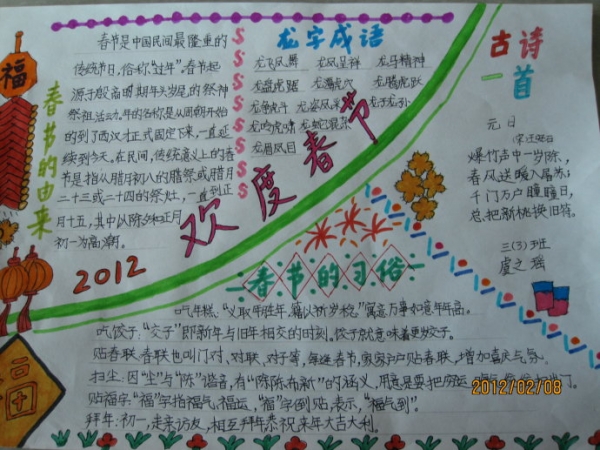 福
春节的由来
春节是中国民间最隆重的
传统节日,俗称"过年"春节起
源于殷商时期年头岁尾的祭神
祭祖活动.年的名称是从周朝开始
的到了西汉才正式固定下来,一直延
续到今天.在民间,传统意义上的春
节是指从腊月初八的腊祭或腊月
二十三或二十四的祭灶,一直到正
月十五,其中以除夕和正月
初一为高潮.
2012
龙字成语
龙飞凤舞 龙凤呈祥 龙马精神
龙腾虎跃
龙争虎斗 龙姿凤采 龙子龙孙
龙鸣虎啸 龙蛇混杂
龙眉凤目
欢度春节
古诗
一首
元日
宋 王安石
爆竹声中一岁除,
春风送暖入屠苏;
千门万户曈曈日,
总把新桃换旧符。
三(3)班
虞之瑶
春节的习俗
吃年糕:"义取年胜年,籍以祈岁稔."寓意万事如意年年高.
吃饺子:"交子"即新年与旧年相交的时刻.饺子就意味着更岁交子.
贴春联:春联也叫门对、对联、对子等,每逢春节,家家户户贴春联,增加喜庆气氛.
扫尘:因"尘"与"陈"谐音,有"除陈布新"的涵义,用意是要把穷运、
贴福字:"福"字指福气、福运,"福"字倒贴,表示,"福气到".
拜年:初一,走亲访友,相互拜年恭祝来年大吉大利.
福
2012/02/08